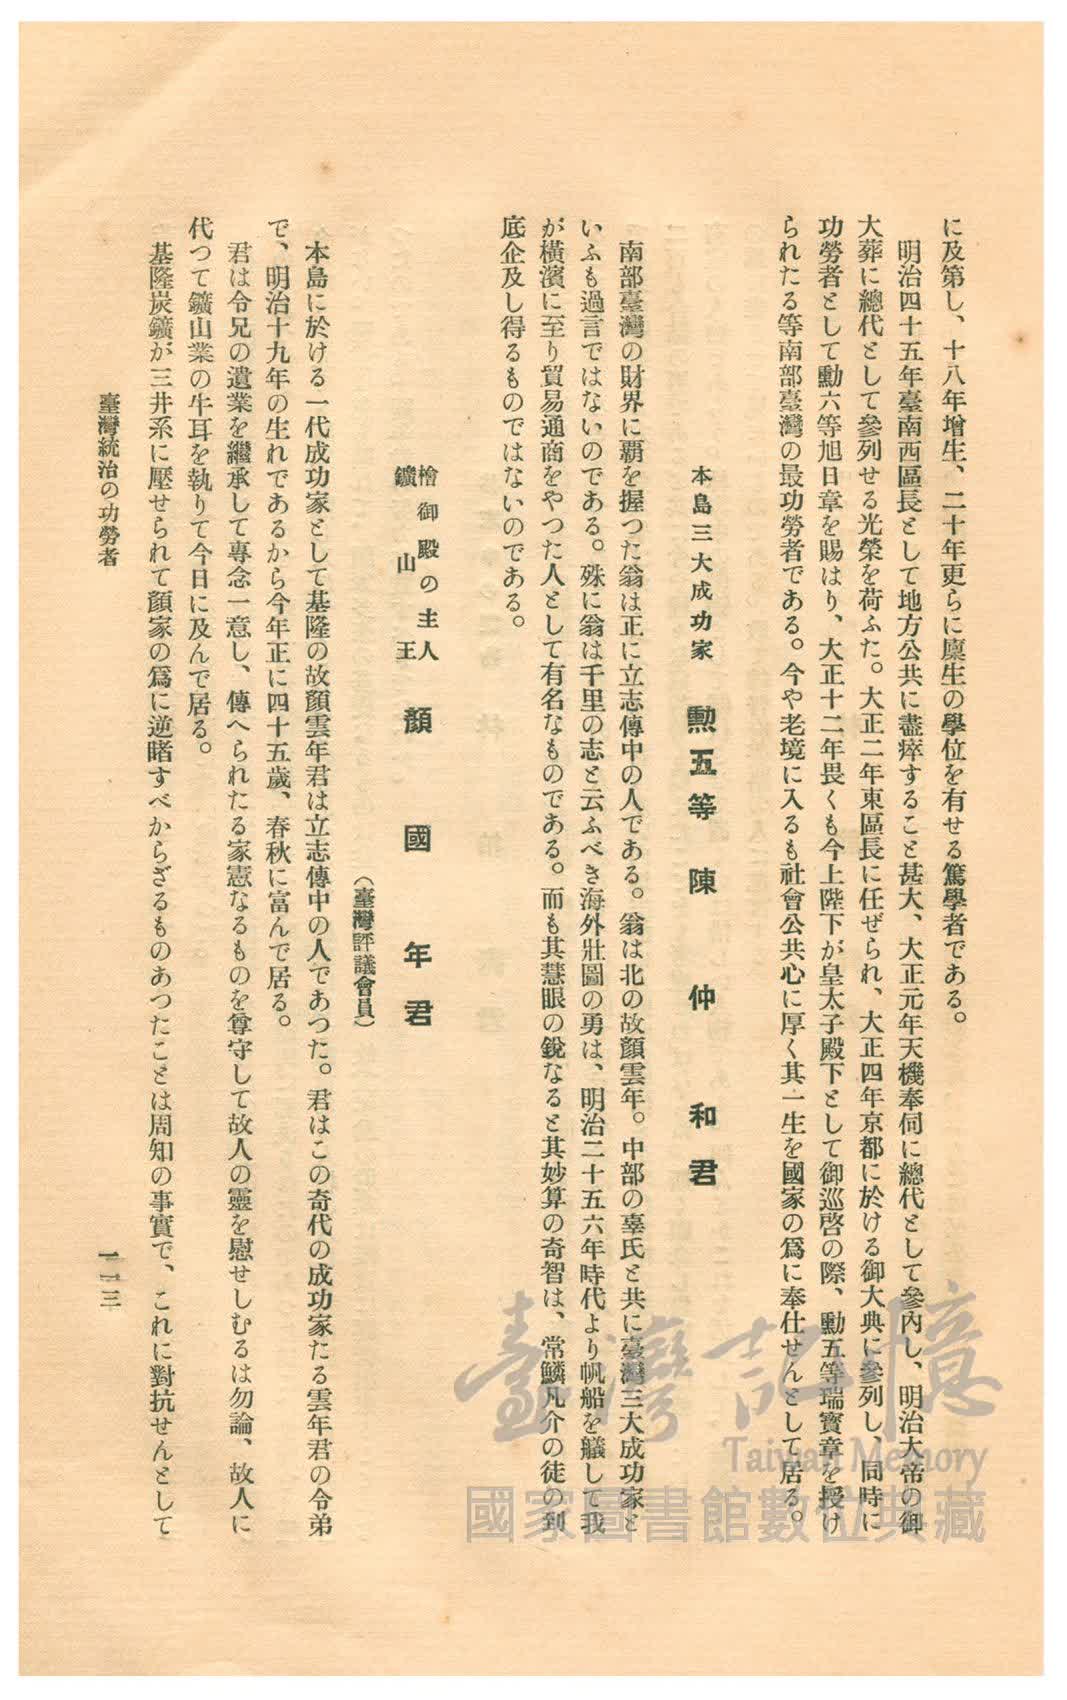 に及第し、十八年增生、二十年更らに廩生の學位を有せる篤學者である。
明治四十五年臺南西區長として地方公共に盡瘁すること甚大、大正元年天機奉伺に總代として參內し、明治大帝の御
大葬に總代として參列せる光榮を荷ふた。大正二年東區長に任ぜられ、大正四年京都に於ける御大典に參列し、同時に
功勞者として勳六等旭日章を賜はり、大正十二年畏くも今上陛下が皇太子殿下として御巡啓の際、勳五等瑞寳章を授け
られたる等南部臺灣の最功勞者である。今や老境に入るも社會公共心に厚く其一生を國家の爲に奉仕せんとして居る。
本島三大成功家 勳五等 陳仲和君
南部臺灣の財界に覇を握つた翁は正に立志傳中の人である。翁は北の故顏雲年。中部の辜氏と共に臺灣三大成功家と
いふも過言ではないのである。殊に翁は千里の志と云ふべき海外壯圖の勇は、明治二十五六年時代より帆船を艤して我
が橫濱に至り貿易通商をやつた人として有名なものである。而も其慧眼の銳なると其妙算の奇智は、常鱗凡介の徒の到
底企及し得るものではないのである。
檜御殿の主人
鑛山王
顏國年君
（臺灣評議會員）
本島に於ける一代成功家として基隆の故顏雲年君は立志傳中の人であつた。君はこの奇代の成功家たる雲年君の令弟
で、明治十九年の生れであるから今年正に四十五歲、春秋に富んで居る。
君は令兄の遺業を繼承して專念一意し、傳へられたる家憲なるものを尊守して故人の靈を慰せしむるは勿論、故人に
代つて鑛山業の牛耳を執りて今日に及んで居る。
基隆炭鑛が三井系に壓せられて顏家の爲に逆睹すべからざるものあつたことは周知の事實で、これに對抗せんとして
臺灣統治の功勞者
一一三
臺灣記憶
Taiwan Memory
國家圖書館數位典藏